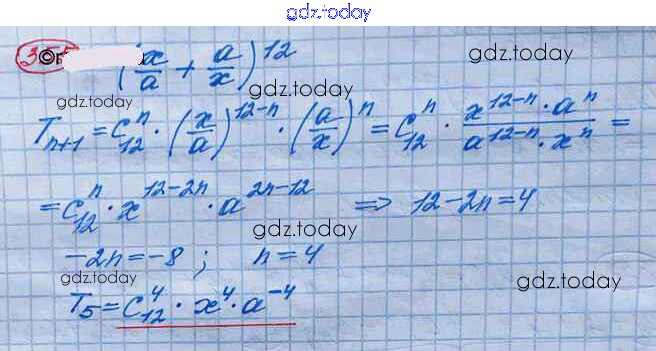 gdz.today
(x/a + a/x)^12 gdz.today
gdz.today gdz.today
T_{n+1} = C_{12}^{n} · (x/a)^{12-n} · (a/x)^{n} = C_{12}^{n} · (x^{12-n} · a^{n})/(a^{12-n} · x^{n}) =
gdz.today
= C_{12}^{n} · x^{12-2n} · a^{2n-12} ⇒ 12-2n=4
gdz.today
-2n=-8 ; n=4
gdz.today gdz.today
T_5 = C_{12}^{4} · x^4 · a^{-4}
gdz.today